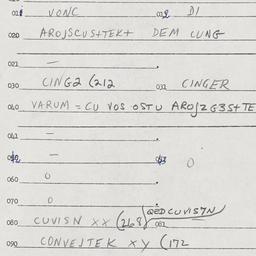 018 VONC 019 DI
020 AROJSCUSTEKT DEM CUNG
021 —
030 CINGZ (212 031 CINGER
040 VARUM = CU VOS OSTU AROJZG3STTE
041 —
— 0
060 0
070 0
080 CUVISN XX (268) QEDCUVIS7N 081
090 CONVEJTEK XY (172